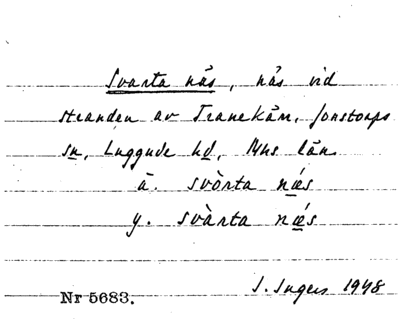 Svarta näs, näs vid
stranden av Tranekärr, Jonstorps
sn, Luggude hd, Mhs län
ä. svòrta nǽs
y. svàrta nǽs
I. Ingers 1948
Nr 5683.